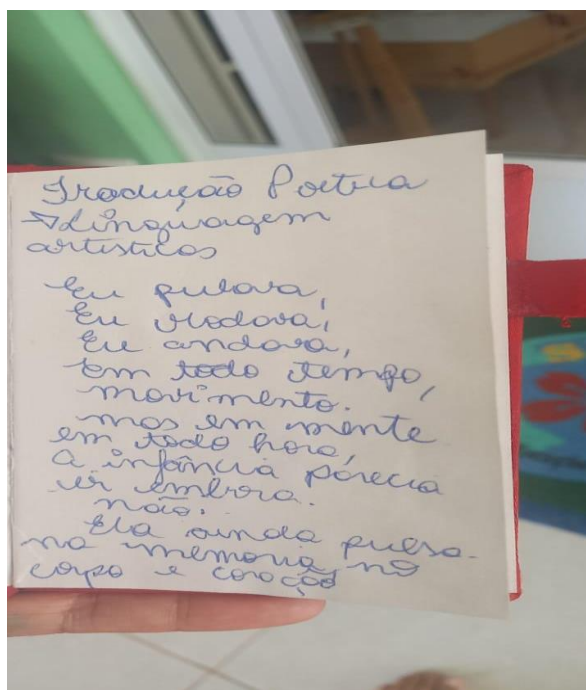 Tradução Poetica
→ Linguagem
artisticas
Eu pulava,
Eu rodava,
Eu andava,
em todo tempo,
movimento.
mas em mente
em todo hora,
a infância parecia
ir embora.
não!
Ela ainda pulsa
na memoria, no
corpo e coração